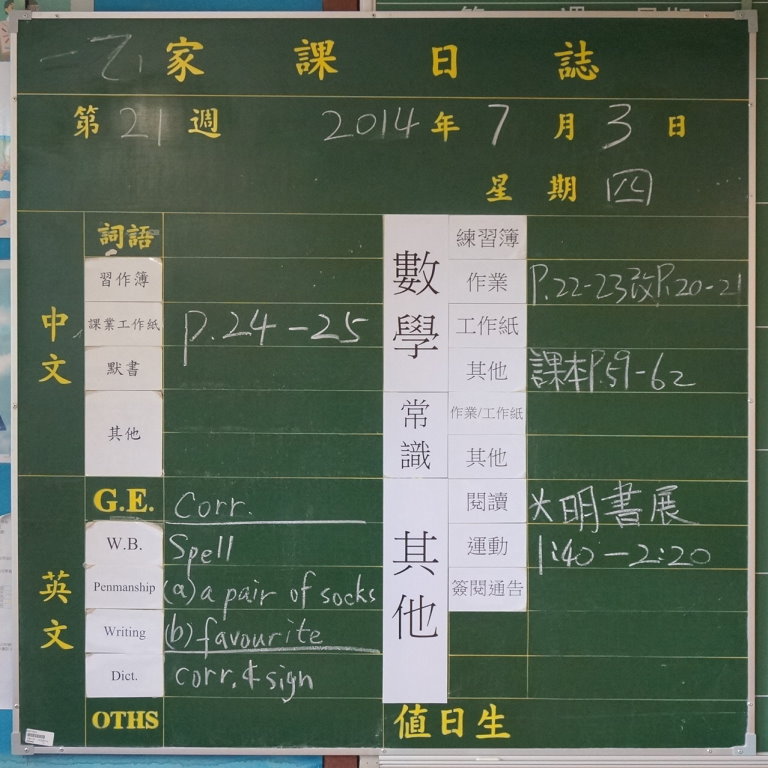 一乙 家課日誌
第 21 週 2014 年 7 月 3 日
星期 四
中文
詞語
習作簿
課業工作紙 P.24-25
默書
其他
英文
G.E. Corr.
W.B. Spell
Penmanship (a) a pair of socks
Writing (b) favourite
Dict. corr. & sign
OTHS
數學
練習簿
作業 P.22-23改P.20-21
工作紙
其他 課本P.59-62
常識
作業/工作紙
其他
其他
閱讀 大明書展
運動 1:40-2:20
簽閱通告
值日生